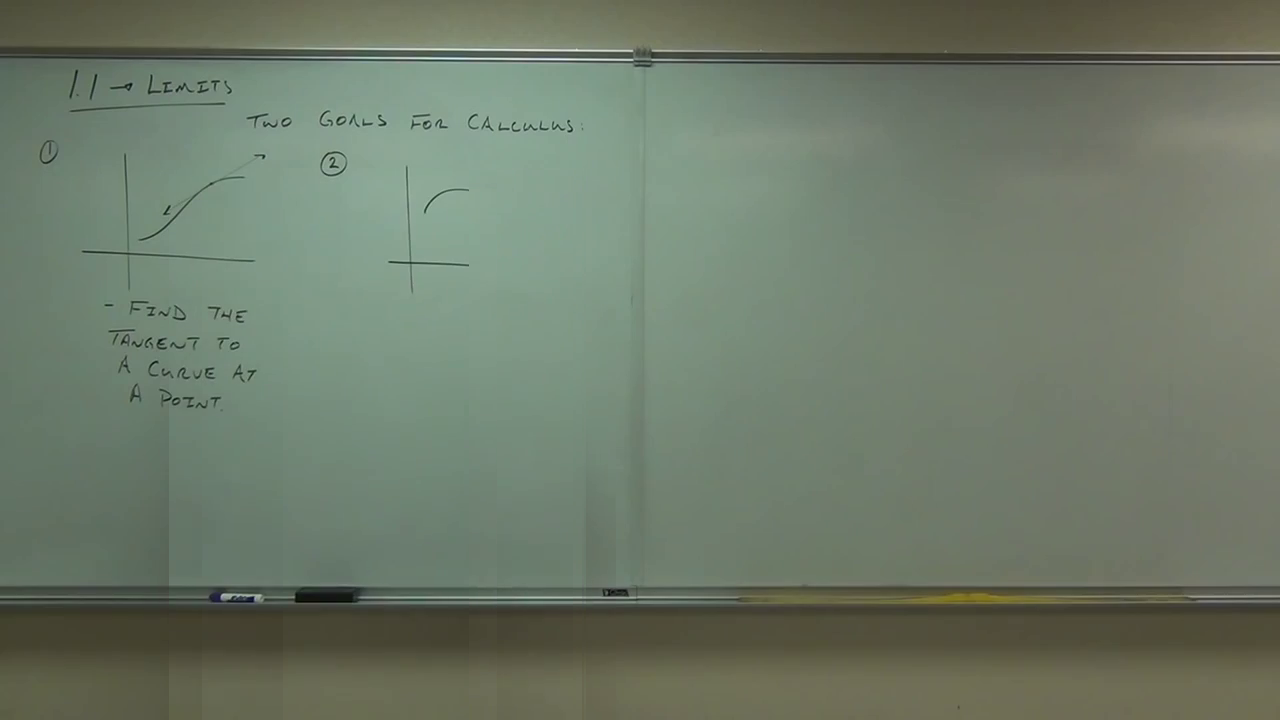 1.1 → LIMITS
TWO GOALS FOR CALCULUS:
①
②
- FIND THE
TANGENT TO
A CURVE AT
A POINT.